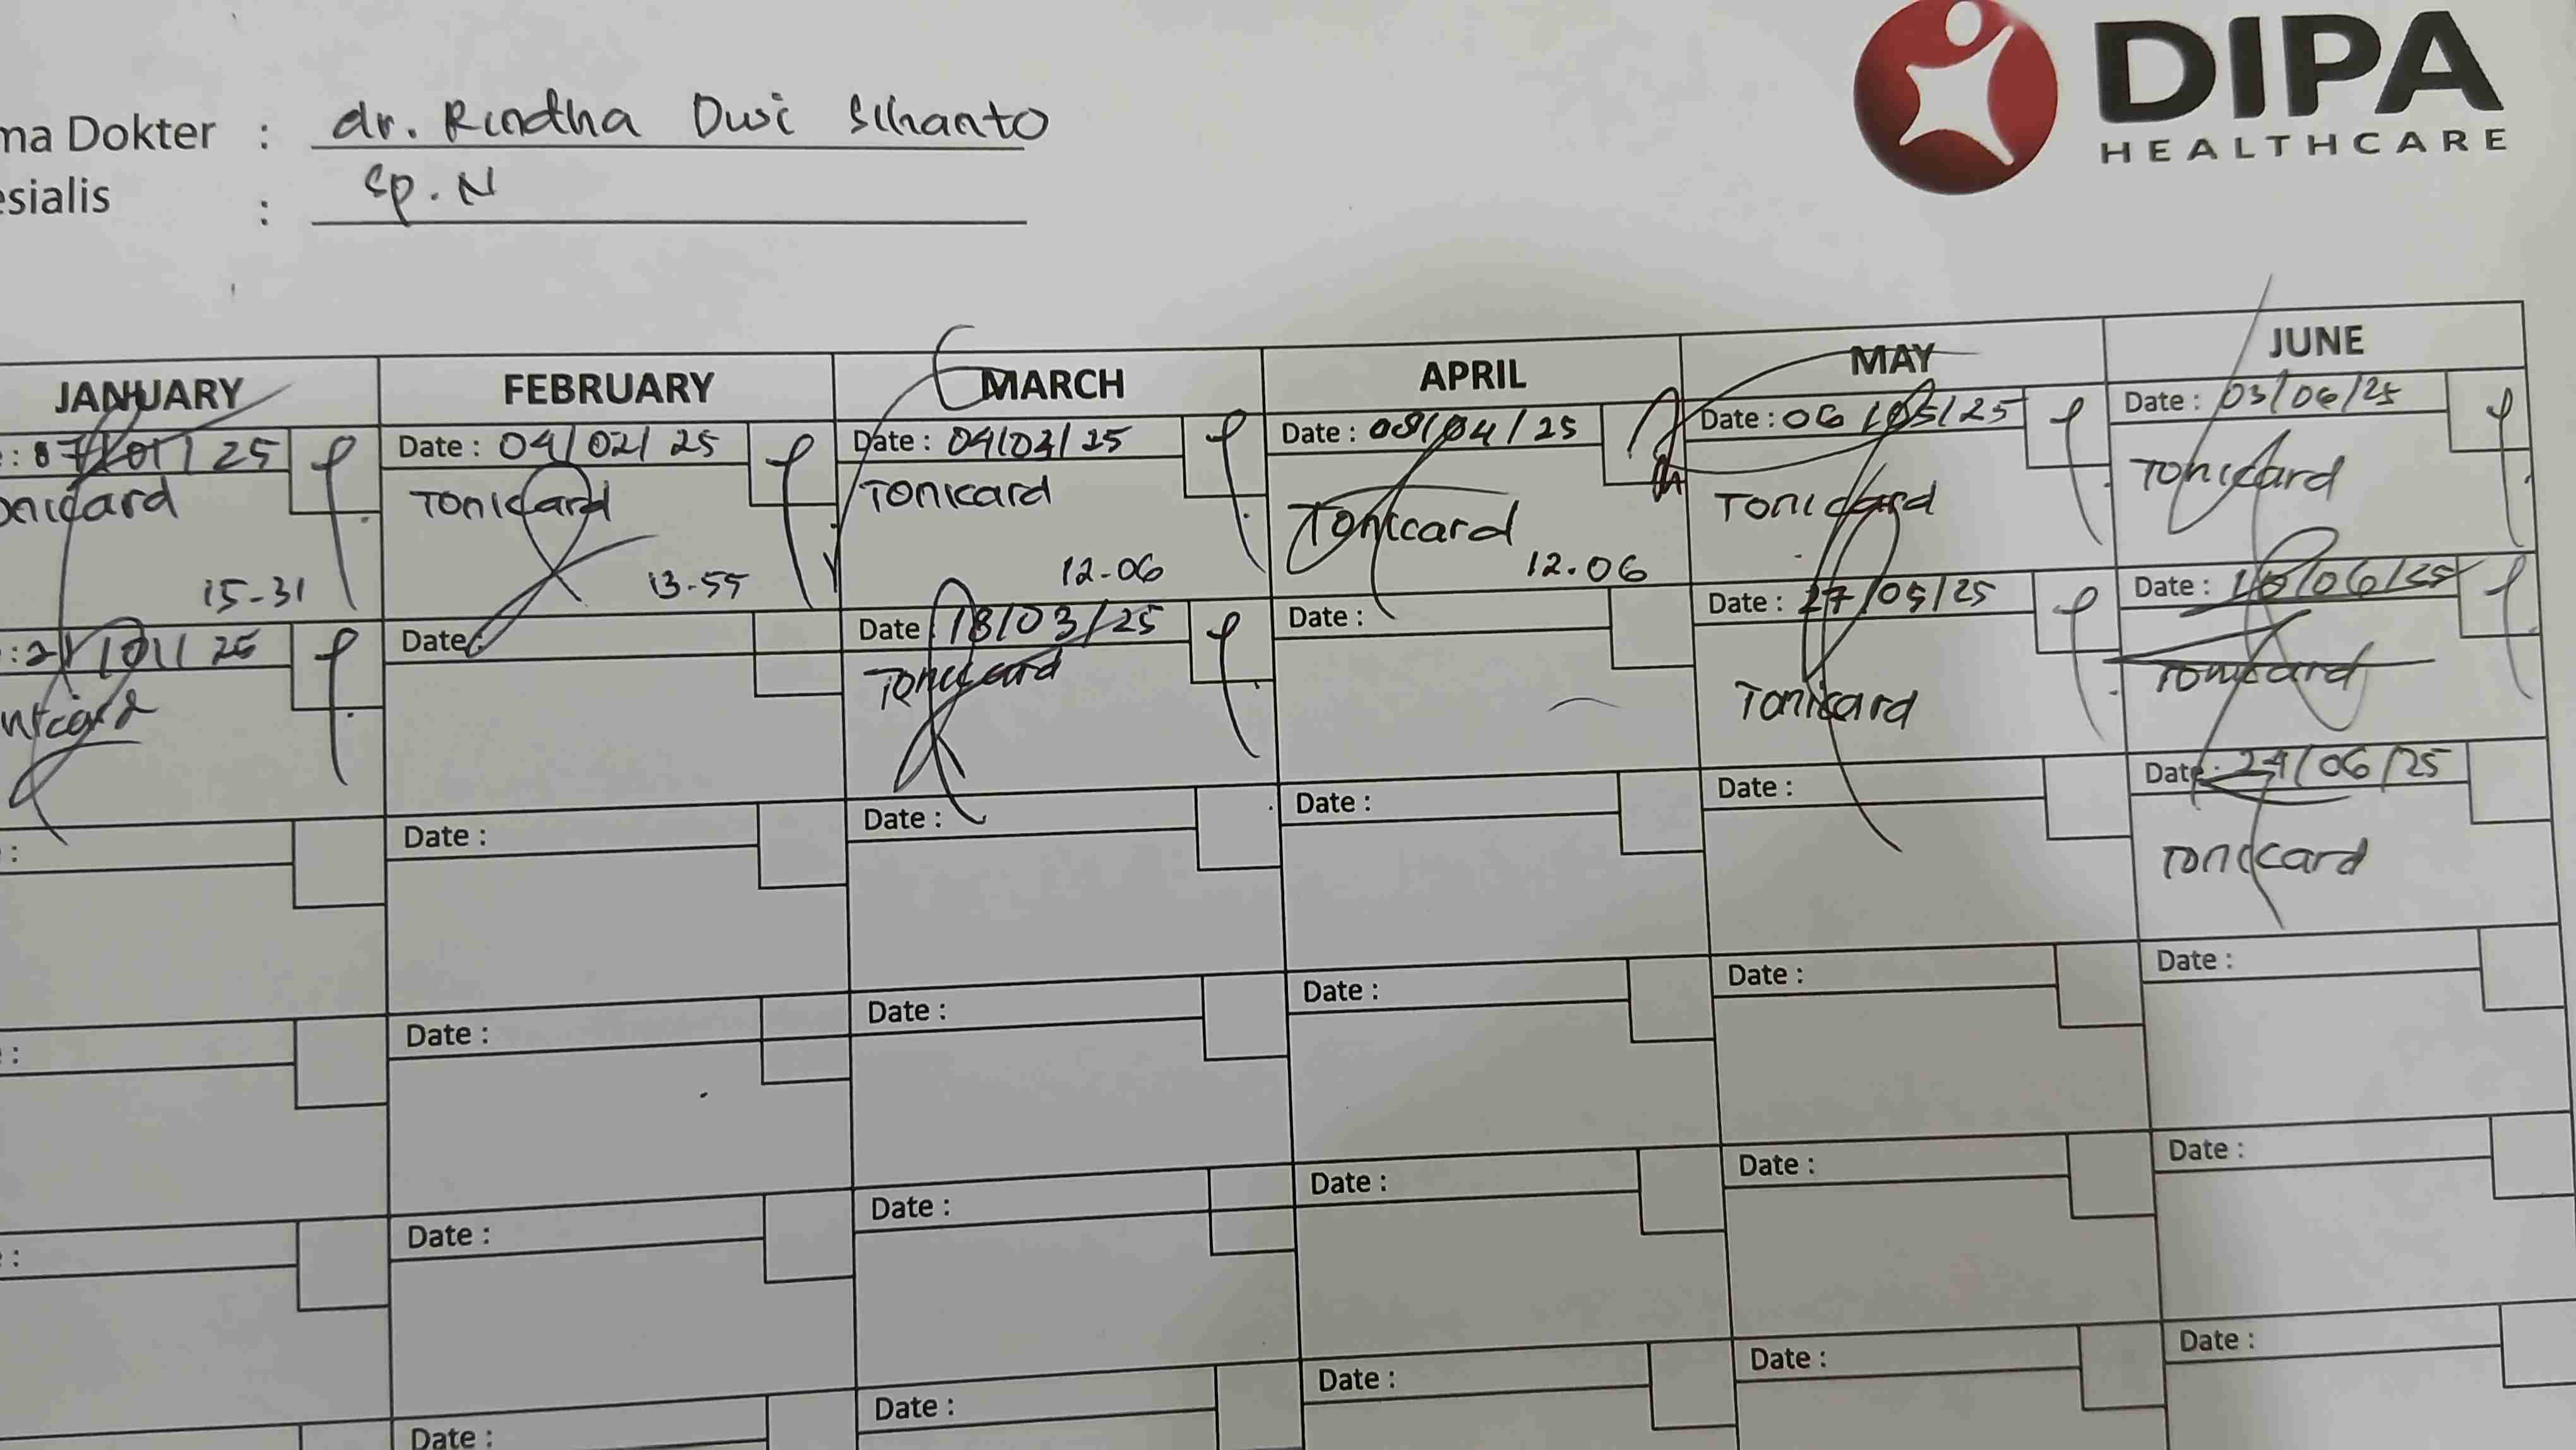 DIPA
HEALTHCARE
ma Dokter : dr. Rindha Dwi
esialis : Sp. N
JANUARY FEBRUARY MARCH APRIL MAY JUNE
: 07/01/25 Date : 04/02/25 Date : 04/03/25 Date : 08/04/25 Date : 06/05/25 Date : 03/06/25
onicard Tonicard Tonicard Tonicard Tonicard Tonicard
15-31 13-55 12-06 12.06
: 21/01/25 Date : Date : 18/03/25 Date : Date : 27/05/25 Date : 10/06/25
nicard Tonicard Tonicard Tonicard
: Date : Date : Date : Date : Date : 24/06/25
Tonicard
: Date : Date : Date : Date : Date :
: Date : Date : Date : Date : Date :
Date : Date : Date : Date : Date :